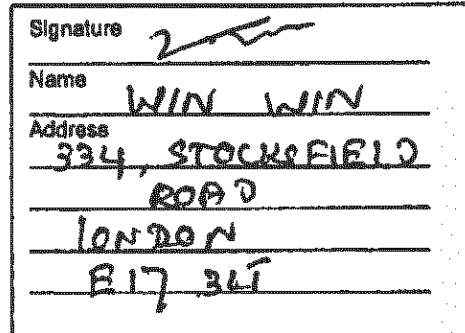 Signature
Name
WIN WIN
Address
334, STOCKSFIELD
ROAD
LONDON
E17 3LT